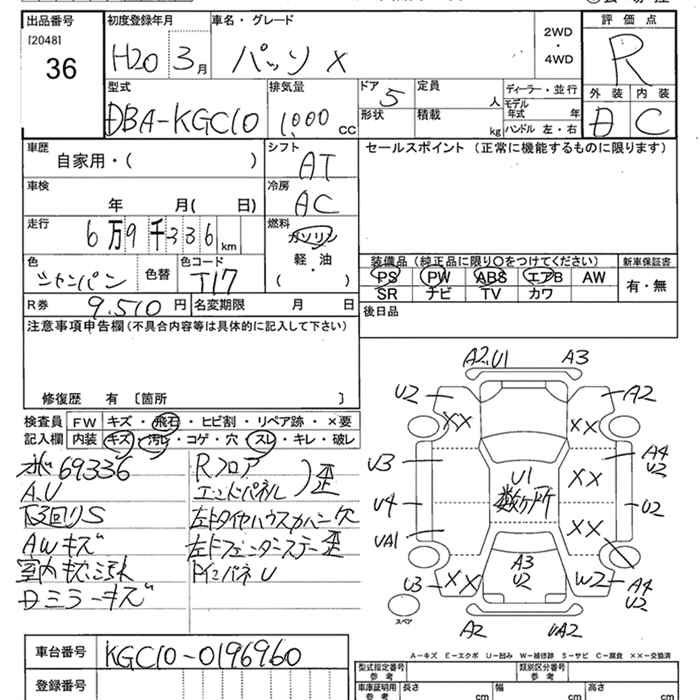 出品番号 初度登録年月 車名・グレード 2WD・4WD 評価点
[2048]
36 H20 3月 パッソ X R
型式 排気量 ドア 5 定員 人 ディーラー・並行 外装 内装
DBA-KGC10 1,000 CC 形状 積載 kg モデル年式 年 D C
ハンドル 左・右
車歴 シフト セールスポイント (正常に機能するものに限ります)
自家用・( ) AT
車検 冷房
年 月( 日) AC
走行 燃料
6万9千336 km ガソリン
軽・油
( )
色 色替 色コード 装備品 (純正品に限り○をつけてください) 新車保証書
シャンパン T17 PS PW ABS エアB AW 有・無
SR ナビ TV カワ
R券 9,510円 名変期限 月 日 後日品
注意事項申告欄 (不具合内容等は具体的に記入して下さい)
修復歴 有 〔箇所 〕
検査員 FW キズ・飛石・ヒビ割・リペア跡・×要
記入欄 内装 キズ・汚レ・コゲ・穴・スレ・キレ・破レ
69336 Rフロア
A.U エンドパネル 歪
下回りS
AWキズ
室内キズ
ドミラーキズ
A2.U1 A3
U2 A2
XX XX
U3 A4
U2
XX
U1
数ヶ所
U4 U2
UA1 XX
A3
U2
U3 XX W2 A4
U2
スペア
A2 UA2
A-キズ E-エクボ U-凹み W-補修跡 S-サビ C-腐食 ××-交換済
車台番号 KGC10-0196960
登録番号
型式指定番号 参考 類別区分番号 参考
車庫証明用 参考 長さ cm 幅 cm 高さ cm